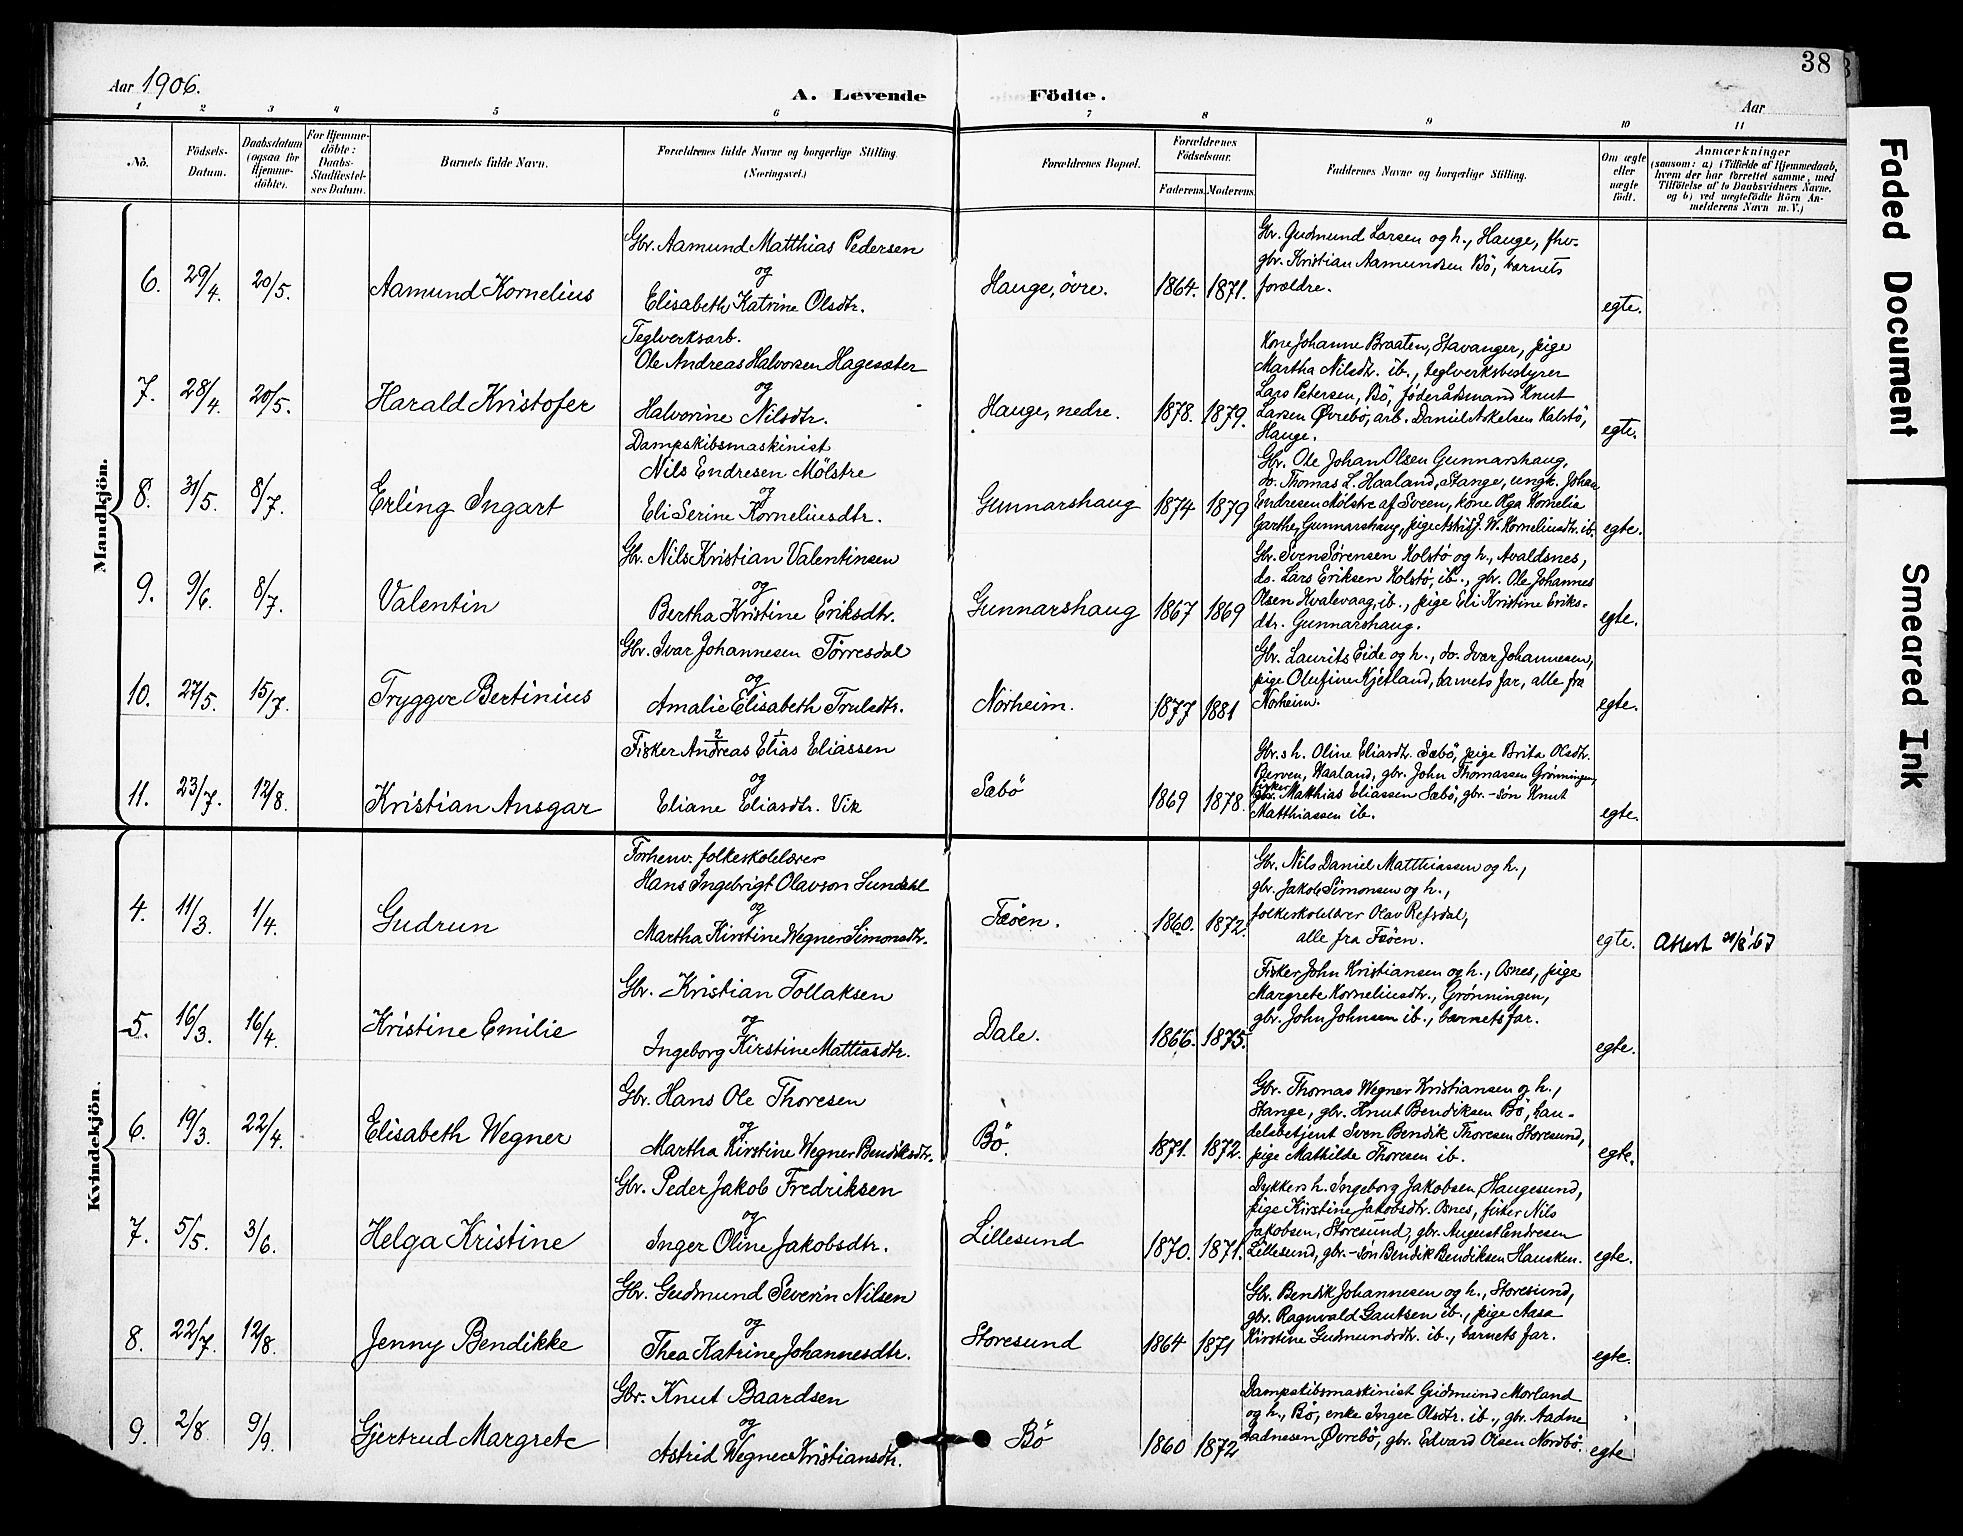 38
Aar 1906.
A. Levende Födte.
Aar
1 2 3 4 5 6 7 8 9 10 11
No.
Födsels-Datum.
Daabsdatum (ogsaa for Hjemme-döbte).
For Hjemme-döbte: Daabs-Stadfæstel-ses Datum.
Barnets fulde Navn.
Forældrenes fulde Navne og borgerlige Stilling. (Næringsvei.)
Forældrenes Bopæl.
Forældrenes Födselsaar.
Faderens. Moderens.
Faddernes Navne og borgerlige Stilling.
Om ægte eller uægte födt.
Anmærkninger
(saasom: a) i Tilfælde af Hjemmedaab, hvem der har forrettet samme, med Tilföielse af to Daabsvidners Navne, og b) ved uægtefödte Börn An-melderens Navn m. V.)
Mandkjön.
6. 29/4. 20/5. Aamund Kornelius
Gbr. Aamund Matthias Pedersen
og
Elisabeth Katrine Olsdtr.
Hauge, övre. 1864. 1871.
Gbr. Gudmund Larsen og h., Hauge, fhv.
gbr. Kristian Aamundsen Bö, barnets
forældre.
egte.
7. 28/4. 20/5. Harald Kristofer
Teglverksarb.
Ole Andreas Halvorsen Hagesæter
og
Halvorine Nilsdtr.
Hauge, nedre. 1878. 1879.
Kone Johanne Braaten, Stavanger, pige
Martha Nilsdtr. ib., teglverksbestyrer
Lars Petersen, Bö, föderådsmand Knut
Larsen Øvrebö, arb. Daniel Askelsen Kalstö,
Hauge.
egte.
8. 31/5. 8/7. Erling Ingart
Dampskibsmaskinist
Nils Endresen Mölstre
og
Eli Serine Korneliusdtr.
Gunnarshaug 1874 1879
Gbr. Ole Johan Olsen Gunnarshaug,
do. Thomas L. Haaland, Stange, ungk. Johan
Endresen Mölstre af Sveen, kone Olga Kornelia
Garthe, Gunnarshaug, pige Astrid J. W. Korneliusdtr. ib.
egte.
9. 9/6. 8/7. Valentin
Gbr. Nils Kristian Valentinsen
og
Bertha Kristine Eriksdtr.
Gunnarshaug 1867 1869
Gbr. Sven Sörensen Kolstö og h., Avaldsnes,
do. Lars Eriksen Kolstö, ib., gbr. Ole Johannes
Olsen Kvalevaag, ib., pige Eli Kristine Eriks-
dtr. Gunnarshaug.
egte.
10. 27/5. 15/7. Tryggve Bertinius
Gbr. Ivar Johannesen Törresdal
og
Amalie Elisabeth Trulsdtr.
Norheim. 1877 1881
Gbr. Laurits Eide og h., do. Ivar Johannesen,
pige Olufine Kjetland, barnets far, alle fra
Norheim.
egte.
11. 23/7. 12/8. Kristian Ansgar
2 1
Fisker Andreas Elias Eliassen
og
Eliane Eliasdtr. Vik
Sæbö 1869 1878.
Gbr.s h. Oline Eliasdtr. Sæbö, pige Brita Olsdtr.
Berven, Haaland, gbr. John Thomassen Grönningen,
fisker
gbr. Matthias Eliassen Sæbö, gbr.-sön Knut
Matthiassen ib.
egte.
Kvindekjön.
4. 11/3. 1/4. Gudrun
Forhenv. folkeskolelærer
Hans Ingebrigt Olavson Sundahl
og
Martha Kirstine Wegner Simonsdtr.
Fæöen. 1860. 1872.
Gbr. Nils Daniel Matthiassen og h.,
gbr. Jakob Simonsen og h.,
folkeskolelærer Olav Refsdal,
alle fra Fæöen.
egte. Attest 21/8 '67
5. 16/3. 16/4. Kristine Emilie
Gbr. Kristian Tollaksen
og
Ingeborg Kirstine Mattiasdtr.
Dale. 1866. 1875.
Fisker John Kristiansen og h., Osnes, pige
Margrete Korneliusdtr., Grönningen,
gbr. John Johnsen ib., barnets far.
egte.
6. 19/3. 22/4. Elisabeth Wegner
Gbr. Hans Ole Thoresen
og
Martha Kirstine Wegner Bendiksdtr.
Bö. 1871. 1872.
Gbr. Thomas Wegner Kristiansen og h.,
Stange, gbr. Knut Bendiksen Bö, han-
delsbetjent Sven Bendik Thoresen Storesund,
pige Mathilde Thoresen ib.
egte.
7. 5/5. 3/6. Helga Kristine
Gbr. Peder Jakob Fredriksen
og
Inger Oline Jakobsdtr.
Lillesund 1870. 1871.
Dykkers h. Ingeborg Jakobsen, Haugesund,
pige Kirstine Jakobsdtr. Osnes, fisker Nils
Jakobsen, Storesund, gbr. August Endresen
Lillesund, gbr.-sön Bendik Bendiksen Hausken.
egte.
8. 22/7. 12/8. Jenny Bendikke
Gbr. Gudmund Severin Nilsen
og
Thea Katrine Johannesdtr.
Storesund 1864 1871
Gbr. Bendik Johannesen og h., Storesund,
gbr. Ragnvald Gautsen ib., pige Aasa
Kirstine Gudmundsdtr. ib., barnets far.
egte.
9. 2/8. 9/9. Gjertrud Margrete
Gbr. Knut Baardsen
og
Astrid Wegner Kristiansdtr.
Bö 1860 1872
Dampskibsmaskinist Gudmund Morland
og h., Bö, enke Inger Olsdtr. ib., gbr. Aadne
Aadnesen Øvrebö, gbr. Edvard Olsen Nordbö.
egte
Faded Document
Smeared Ink